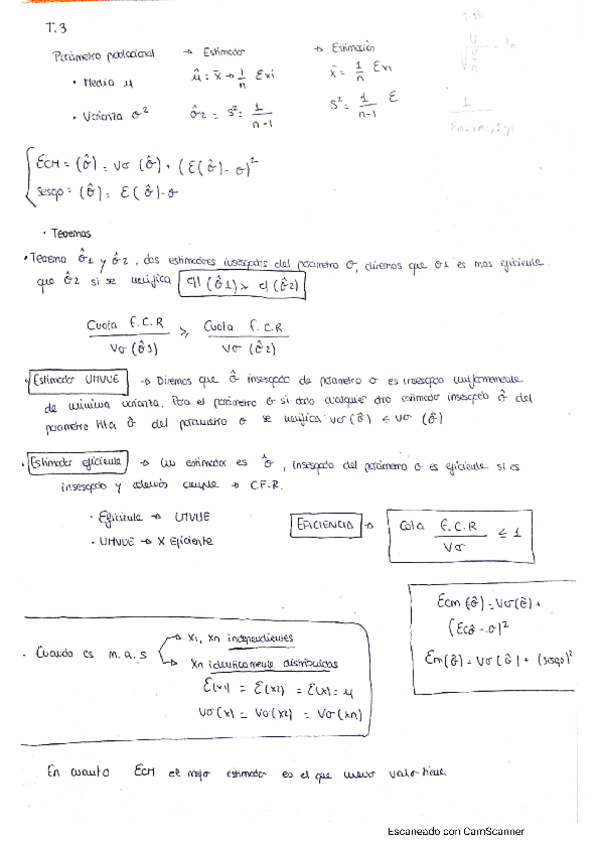 T.3
Parámetro poblacional → Estimador → Estimación
• Media μ   μ̂ = x̄ → 1/n Σxi   x̄ = 1/n Σxi
• Varianza σ²   σ̂2 = S² = 1/n-1   S² = 1/n-1 Σ
ECM = (θ̂) = Vσ (θ̂) + (E(θ̂) - θ)²
Sesgo = (θ̂) = E(θ̂) - θ
• Teoremas
• Teorema θ̂1 y θ̂2, dos estimadores insesgados del parametro θ, diremos que θ1 es mas eficiente
que θ̂2 si se verifica (θ̂1) > (θ̂2)
Cuota F.C.R / Vσ (θ̂1) > Cuota F.C.R / Vσ (θ̂2)
• Estimador UMVUE → Diremos que θ̂ insesgado de parametro θ es insesgado uniformemente
de minima varianza. Para el parámetro θ si dado cualquier otro estimador insesgado θ̂ del
parametro θ se verifica Vσ(θ̂) ≤ Vσ (θ̂)
• Estimador eficiente → Un estimador es θ̂, insesgado del parámetro θ es eficiente si es
insesgado y además cumple → C.F.R.
• Eficiente → UMVUE
• UMVUE → X Eficiente
EFICIENCIA → Cota F.C.R / Vσ ≤ 1
Ecm (θ̂) = Vσ(θ̂) +
(Eθ̂ - θ)²
Em(θ̂) = Vσ(θ̂) + (sesgo)²
• Cuando es m.a.s → x1, xn independientes
→ xn identicamente distribuidas
E(x1) = E(x2) = E(x) = μ
Vσ(x) = Vσ(x2) = Vσ(xn)
En cuanto ECM el mejor estimador es el que menor valor tiene.
Escaneado con CamScanner